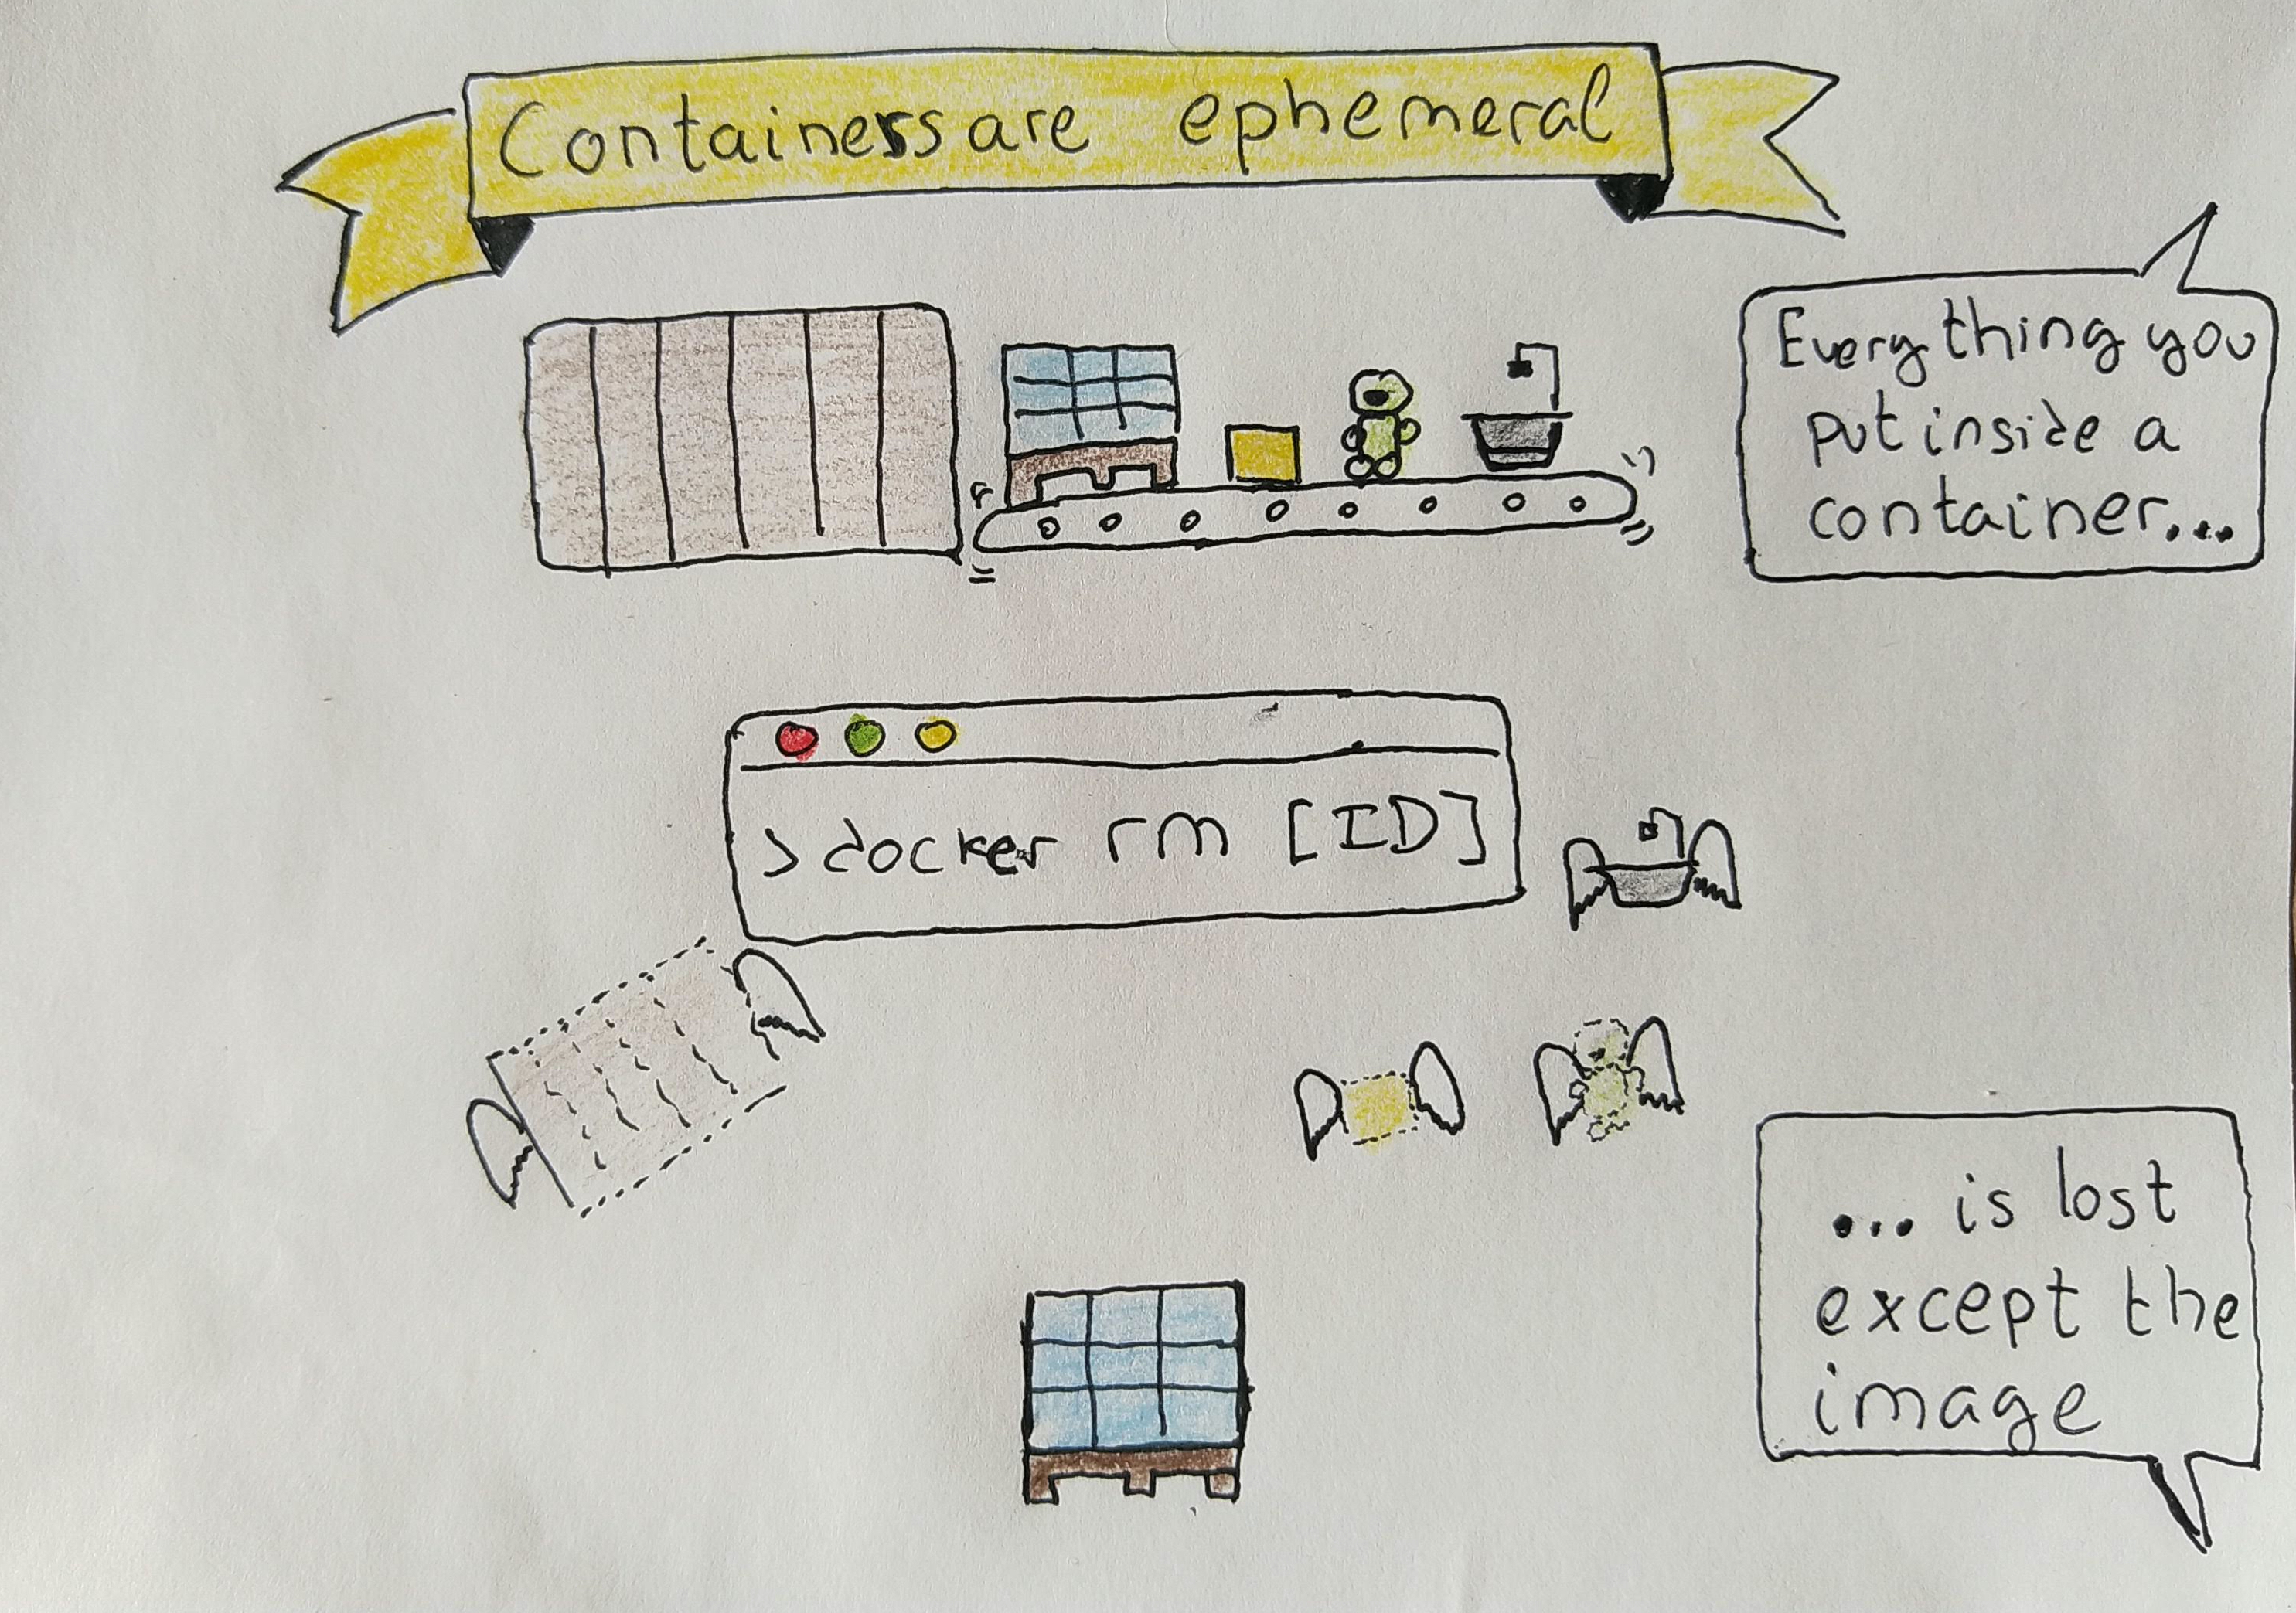 Containers are ephemeral
Everything you
put inside a
container...
> docker rm [ID]
... is lost
except the
image